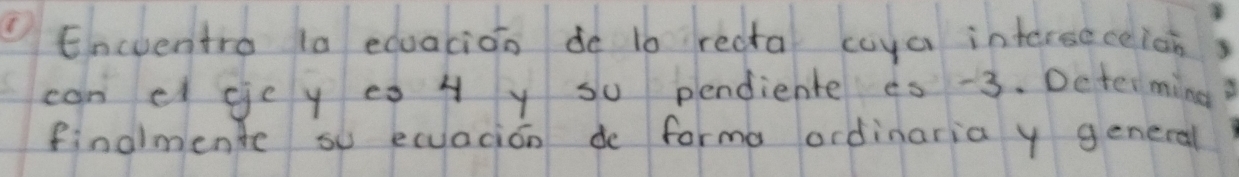 ① Encuentra la ecuación de la recta cuya intersección
con el eje y es 4 y su pendiente es -3. Determina
finalmente su ecuación de forma ordinaria y general